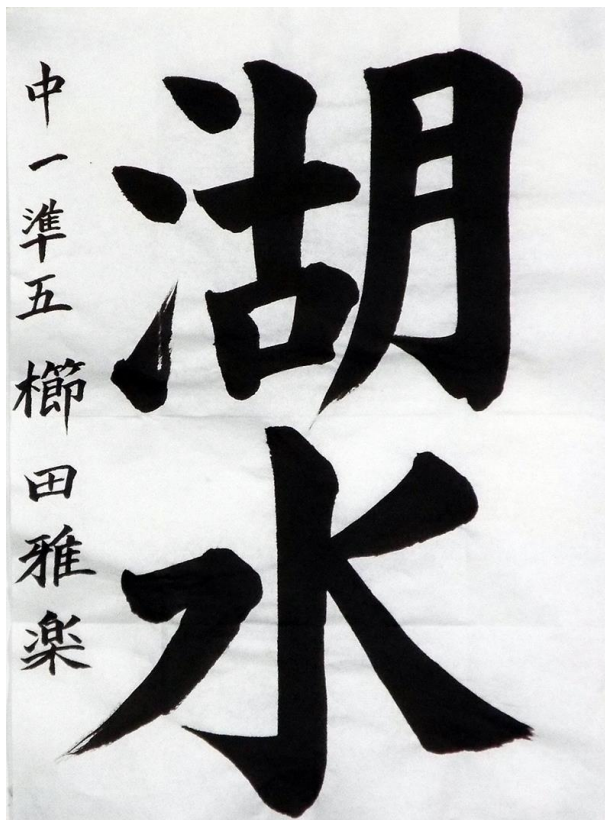 湖水
中一準五 櫛田雅楽